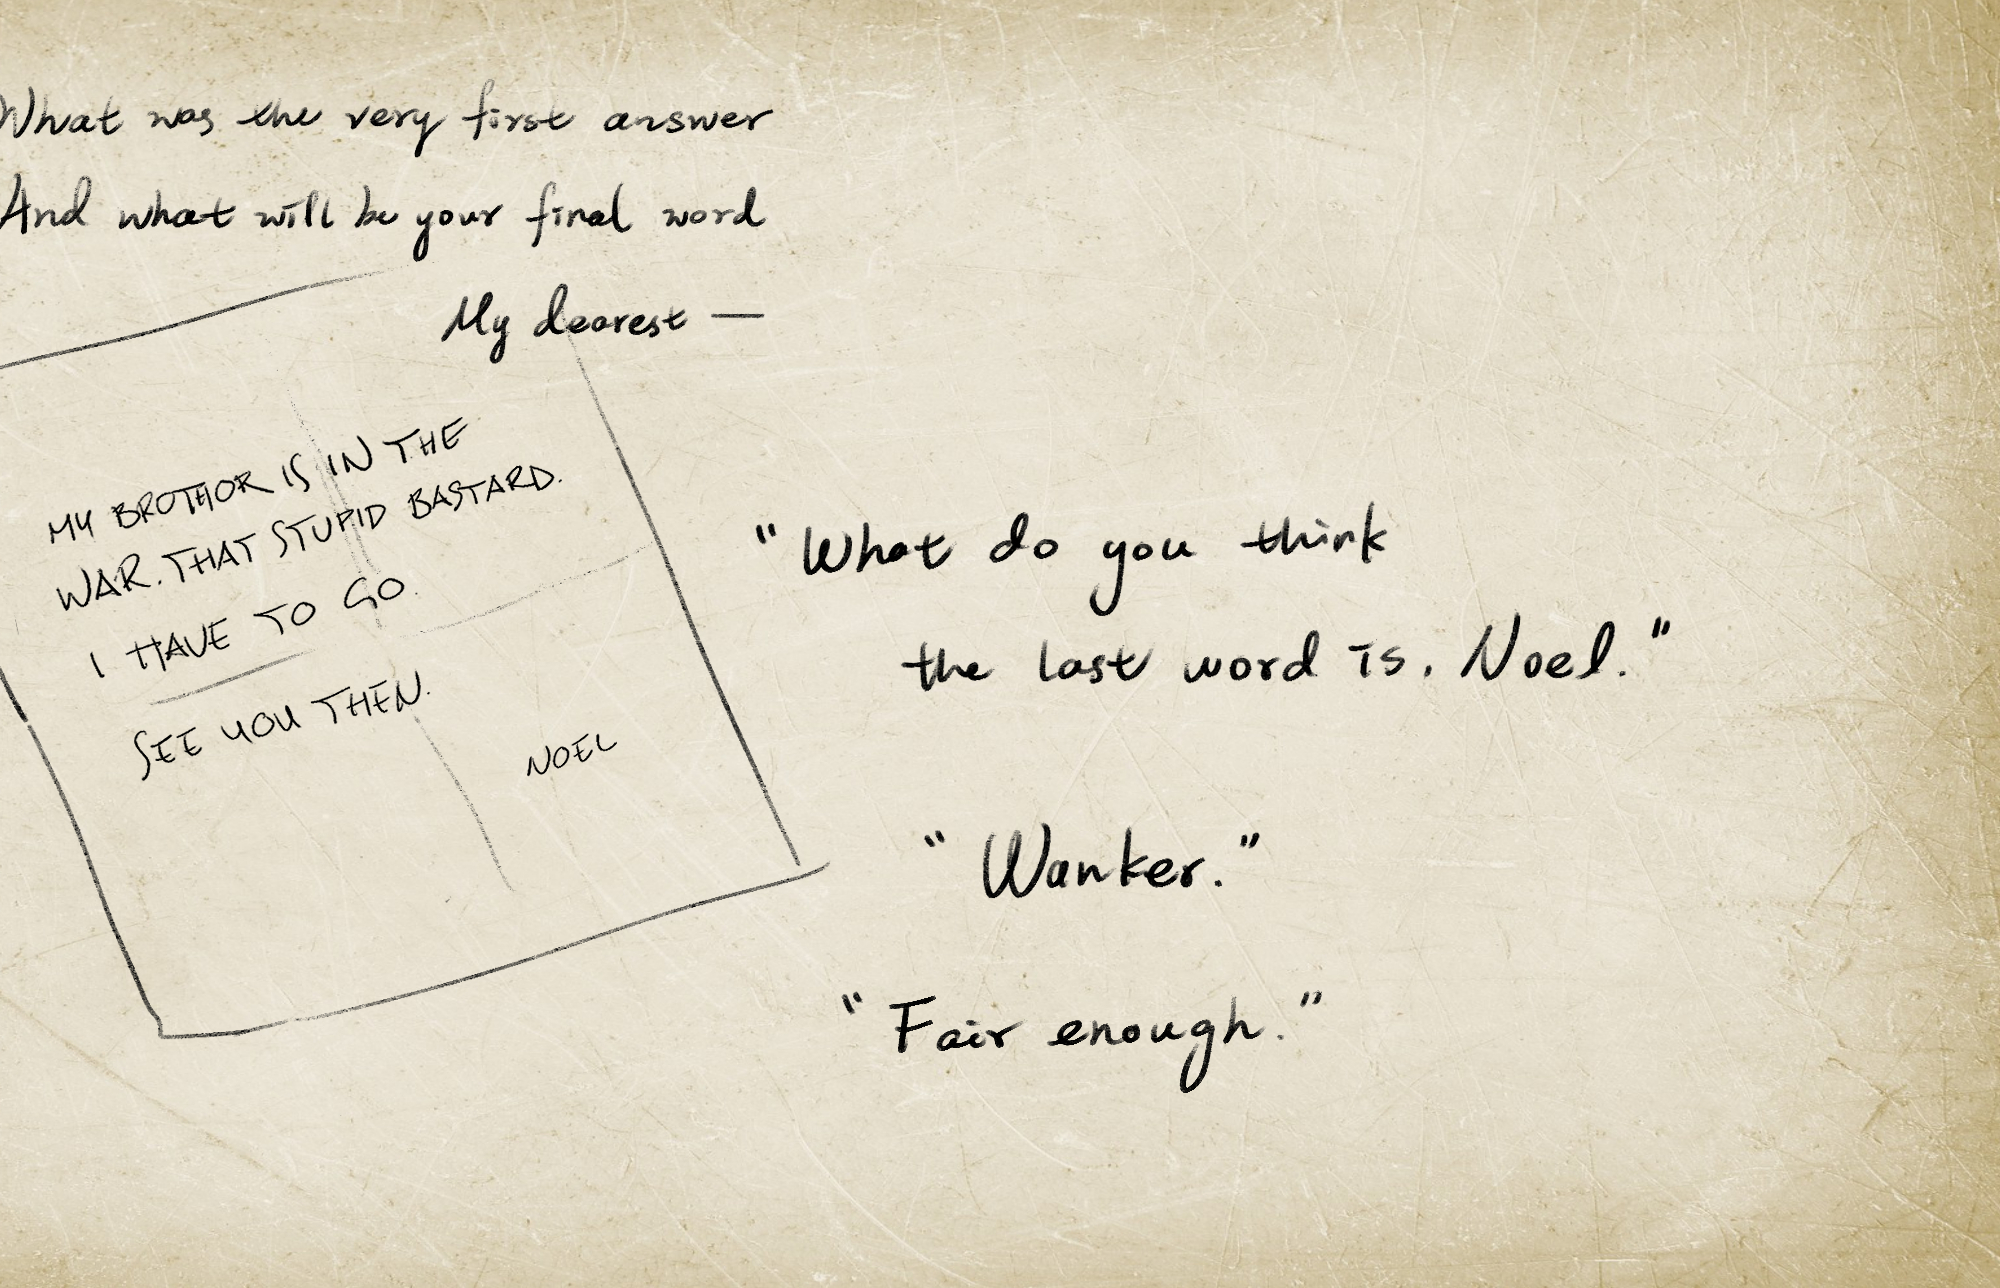 What was the very first answer
And what will be your final word
My dearest —
MY BROTHOR IS IN THE
WAR. THAT STUPID BASTARD.
I HAVE TO GO.
SEE YOU THEN.
NOEL
"What do you think
the last word is, Noel."
"Wanker."
"Fair enough."